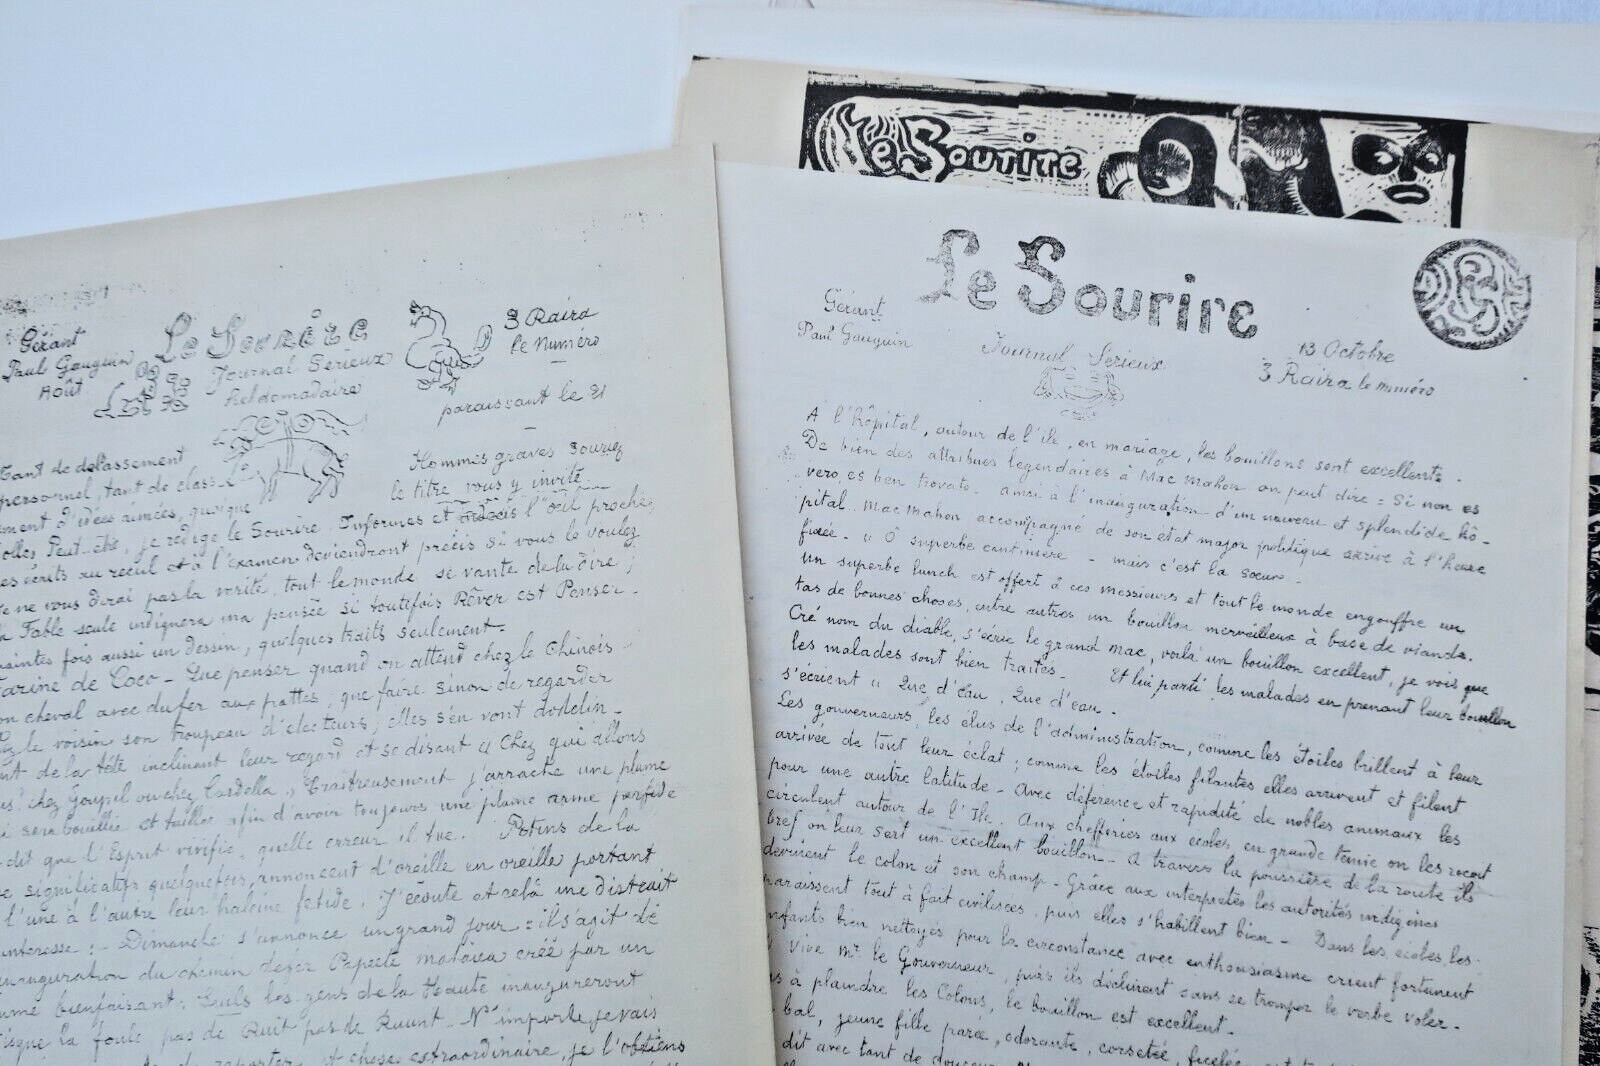 Le Sourire
Gérant
Paul Gauguin
Août
Le Sourire
Journal Serieux
hebdomadaire
3 Raira
le Numéro
paraissant le 21
Hommes graves souriez
le titre vous y invite
Tant de delassement
personnel, tant de class
ement d'idées aimées, quoique
folles Peut-être, je redige le Sourire. Informes et l'oeil proche,
es écrits au recul et à l'examen deviendront précis si vous le voulez
Je ne vous dirai pas la vérité, tout le monde se vante de la dire ;
la Fable seule indiquera ma pensée si toutefois Rêver est Penser.
maintes fois aussi un dessin, quelques traits seulement.
Farine de Coco - Que penser quand on attend chez le Chinois
on cheval avec du fer aux pattes, que faire sinon de regarder
chez le voisin son troupeau d'électeurs ; elles s'en vont dodelin-
nt de la tête inclinant leur regard et se disant " Chez qui allons
us ? chez Goupil ou chez Cardella " Traîtreusement j'arrache une plume
i sera bouillie et taillée afin d'avoir toujours une plume arme perfide
dit que l'Esprit vivifie, quelle erreur il tue. Potins de la
e significatifs quelquefois, annoncent d'oreille en oreille portant
l'une à l'autre leur haleine fetide. J'écoute et celà me distrait
interesse : - Dimanche s'annonce un grand jour : il s'agit de
inauguration du chemin de fer Papeete mataiea créé par un
me bienfaisant. Seuls les gens de la Haute inaugureront
la foule pas de Ruit pas de Ruunt - N'importe je vais
de reporter et chose extraordinaire, je l'obtiens
Le Sourire
Gérant
Paul Gauguin
Journal Serieux
13 Octobre
3 Raira le numéro
A l'hôpital, autour de l'île, en mariage, les bouillons sont excellents.
De bien des attribués legendaires à Mac Mahon on peut dire = Si non es
vero es ben trovato. ainsi à l'inauguration d'un nouveau et splendide hô-
pital. Mac Mahon accompagné de son état major politique arrive à l'heure
fixée. " Ô superbe cantinière - mais c'est la soeur -
un superbe lunch est offert à ces messieurs et tout le monde engouffre un
tas de bonnes choses, entre autres un bouillon merveilleux à base de viande.
Cré nom du diable, s'écrie le grand Mac, voilà un bouillon excellent, je vois que
les malades sont bien traités. Et lui parti les malades en prenant leur bouillon
s'écrient " Que d'eau, Que d'eau.
Les gouverneurs, les élus de l'administration, comme les étoiles brillent à leur
arrivée de tout leur éclat ; comme les étoiles filantes elles arrivent et filent
pour une autre latitude - Avec déférence et rapidité de nobles animaux les
circulent autour de l'Ile. Aux chefferies aux écoles en grande tenue on les reçoit
bref on leur sert un excellent bouillon - A travers la poussière de la route ils
devinent le colon et son champ - Grâce aux interprètes les autorités indigènes
paraissent tout à fait civilisées, puis elles s'habillent bien - Dans les écoles les
nfants bien nettoyés pour la circonstance avec enthousiasme crient fortement
Vive Mr. le Gouverneur, puis ils déclinent sans se tromper le verbe voler.
s à plaindre les Colons, le bouillon est excellent.
bal, jeune fille parée, odorante, corsetée, ficelée
dit avec tant de douceur